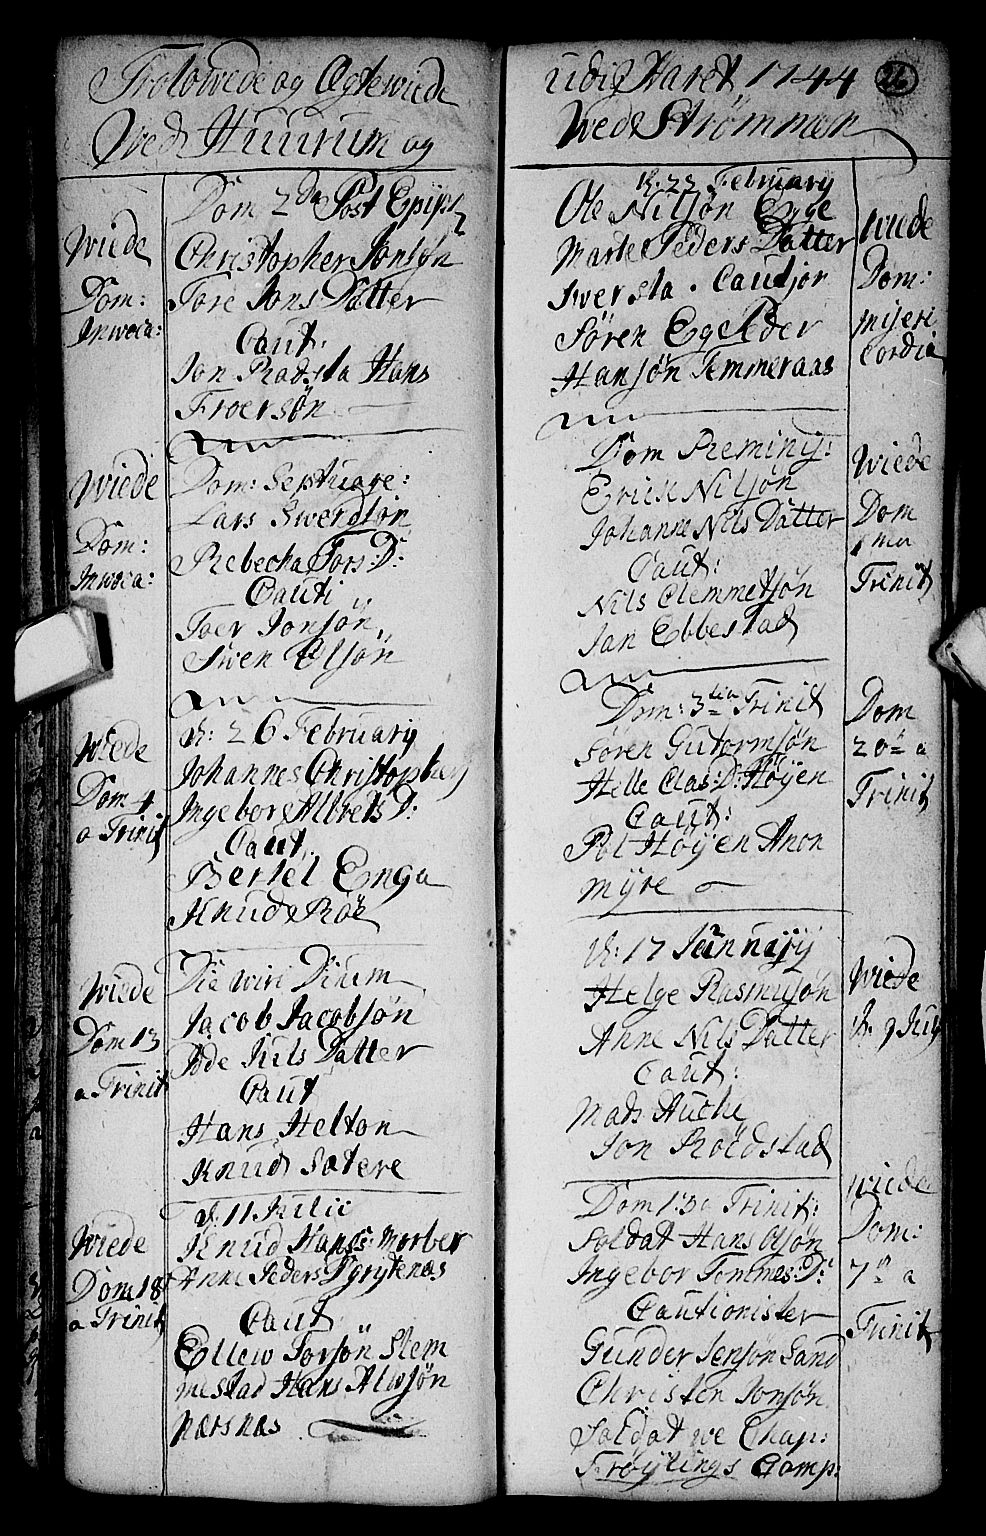 Trolowede og Ægtewiede
Wed Huurum og
Wiede
Dom:
Inwoca:
Dom 2da Post Epiph
Christopher Jonsøn
Tore Jons Datter
Caut:
Jon Rodsta Hans
Froersøn
Wiede
Dom:
Inwoca:
Dom: Septuage:
Lars Swerdsøn
Rebecha Tors: D:
Cauti
Toer Jonsøn
Swen Olsøn
Wiede
Dom 4
a Trinit
d: 26 February
Johannes Christophers
Ingebor Albrets D:
Caut.
Bertel Enga
Knud Røe
Wiede
Dom 13
a Trinit
Die wiri Dinum
Jacob Jacobsøn
Ode Juls Datter
Caut
Hans Helton
Knud Sætere
Wiede
Dom 18
a Trinit
d: 11 Julii
Knud Hans: Morber
Anne Peders Grytenæs
Caut
Ellew Torsøn Stem
mestad Hans Alwsøn
Næsnæs
udi Aaret 1744
26
Wed Strømmen
d: 22 February
Ole Nilsøn Egge
Marte Peders Datter
Swersta . Cautjor
Søren Ege Peder
Hansøn Temmeraas
Wiede
Dom:
miseri
Cordia
Dom Reminy:
Erick Nilsøn
Johanne Nils Datter
Caut:
Nils Clemmetsøn
Jan Ebbestad
Wiede
Dom
1ma
Trinit
Dom: 3tia Trinit
Søren Gutormsøn
Helle Clas: D: Høyen
Caut:
Pol Høyen Anon
myre
Dom
20 a
Trinit
d: 17 Jannary
Helge Rasmusøn
Anne Nils Datter
Caut:
Mads Auche
Jon Roedstad
Wiede
d. 9 July
Dom 1 3a Trinit:
Soldat Hans Olsøn
Ingebor Tommes: D:
Cautionister
Gunder Jensøn Sand
Christen Jonsøn
Soldat we Chap:
Frøylings Comp:
Wiede
Dom:
7 a
Trinit